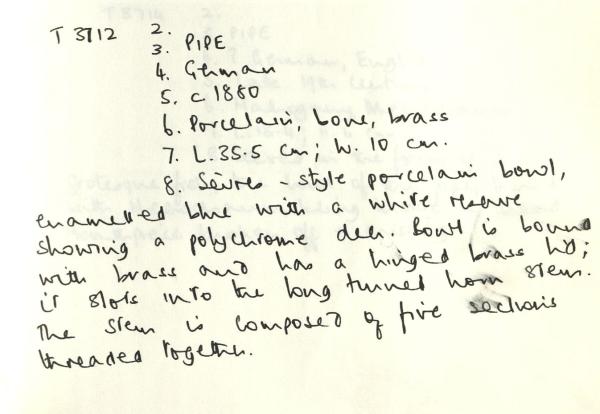 T 3712 2.
3. PIPE
4. German
5. c 1880
6. Porcelain, bone, brass
7. L. 35.5 cm; W. 10 cm.
8. Sèvres-style porcelain bowl,
enamelled blue with a white reserve
showing a polychrome deer. Bowl is bound
with brass and has a hinged brass lid;
it slots into the long turned horn stem.
The stem is composed of five sections
threaded together.